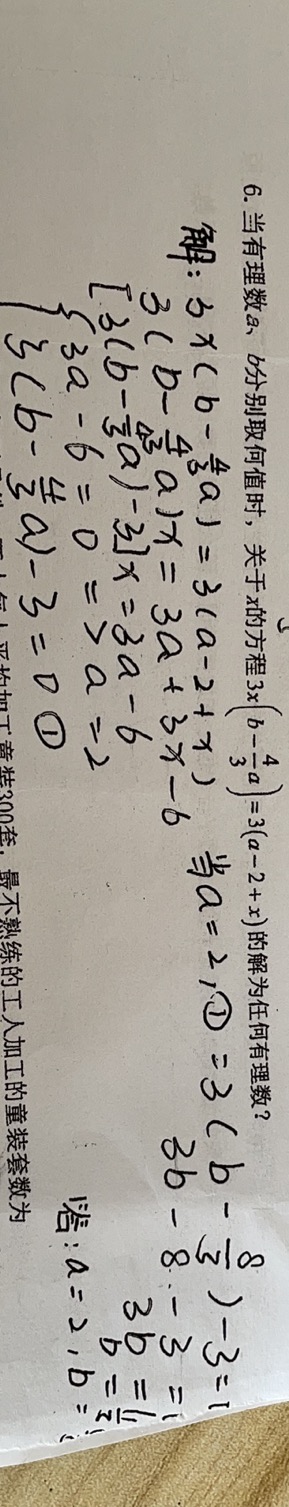 6. 当有理数a、b分别取何值时，关于x的方程3x(b-4/3a)=3(a-2+x)的解为任何有理数？
解：3x(b-4/3a)=3(a-2+x)
3(b-4/3a)x=3a+3x-6
[3(b-4/3a)-3]x=3a-6
{3a-6=0=>a=2
3(b-4/3a)-3=0①
当a=2,①=3(b-8/3)-3=
3b-8-3=
3b=
b=
答：a=2,b=
平均加工童装300套，最不熟练的工人加工的童装套数为